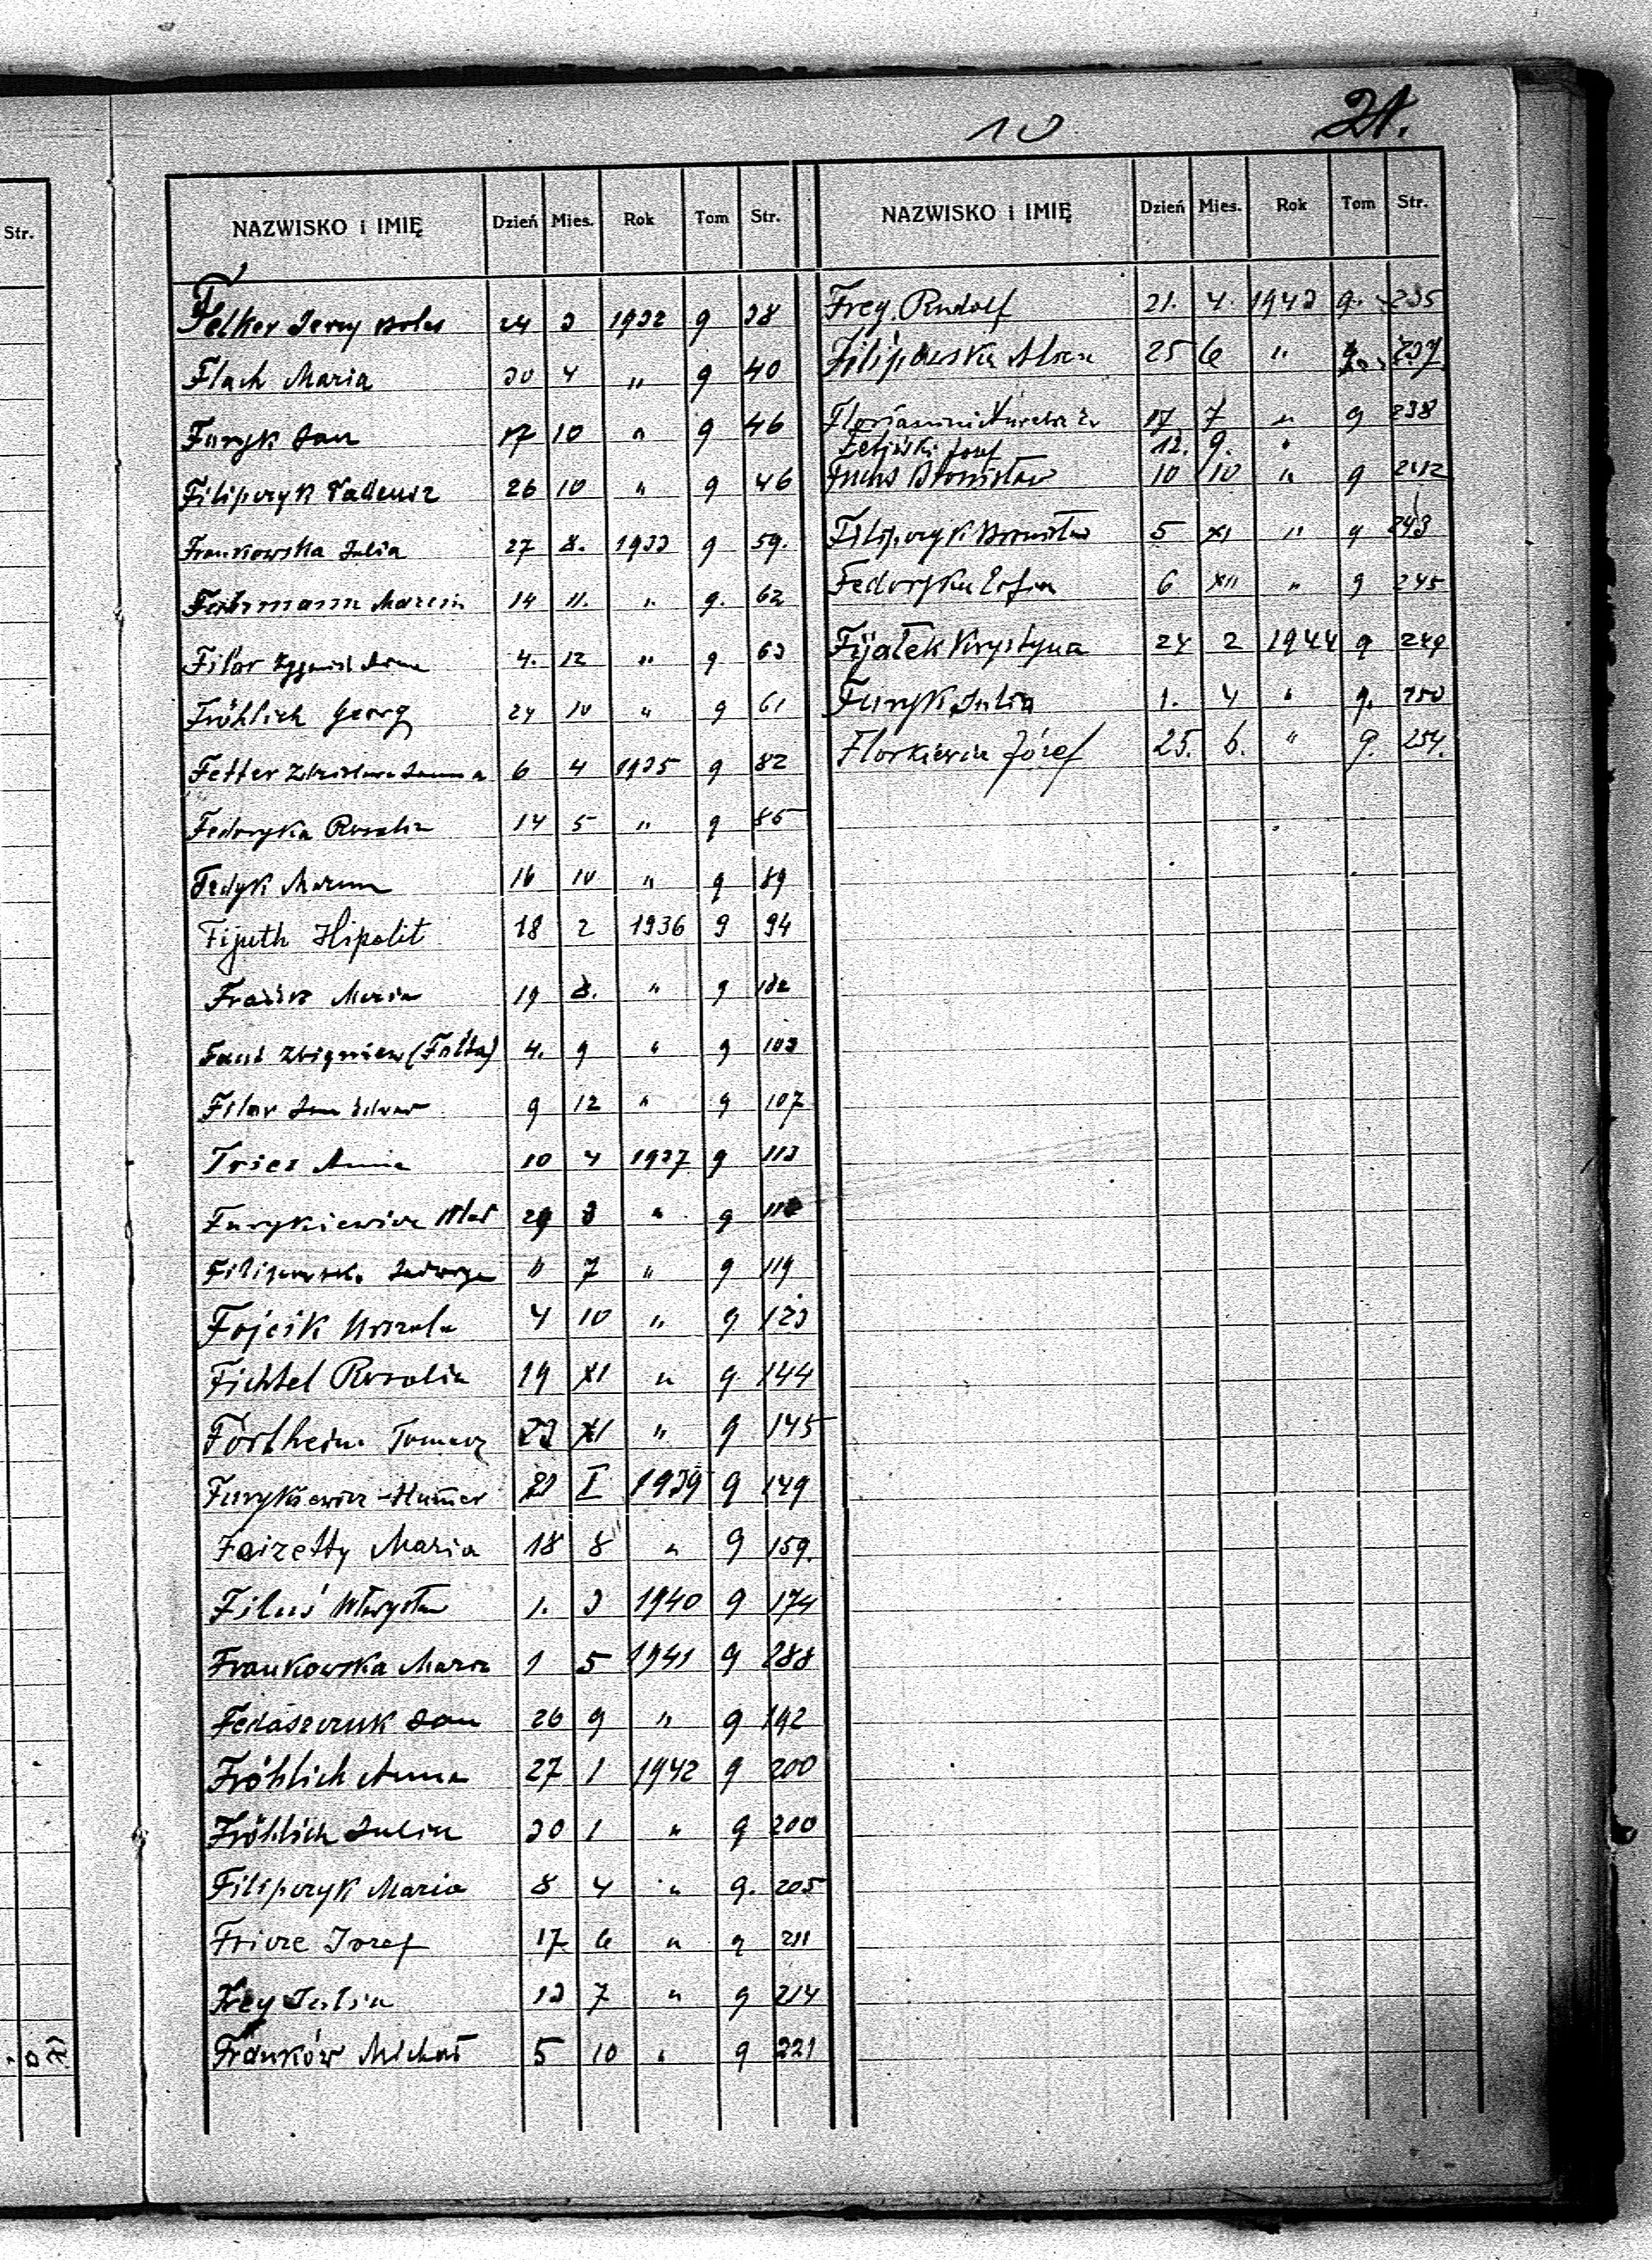 10
21.
Str.
NAZWISKO i IMIĘ Dzień Mies. Rok Tom Str.
Felker Jerzy 24 3 1932 9 38
Flach Maria 30 4 " 9 40
Furyk Jan 17 10 " 9 46
Filipczyk Tadeusz 26 10 " 9 46
Frankowska Julia 27 8. 1933 9 59.
Marcin 14 11. " 9. 62
Filar 4. 12 " 9 63
Fröhlich Georg 24 10 " 9 61
Fetter 6 4 1935 9 82
Fedoryka Rozalia 14 5 " 9 85
Fedyk 16 10 " 9 89
Fijuth Hipolit 18 2 1936 9 94
Maria 19 8. " 9 102
Zbigniew (Folta) 4. 9 " 9 103
Filar Jan 9 12 " 9 107
Fries Anna 10 4 1937 9 113
Furykiewicz Wład 29 3 " 9
Jadwiga " 7 " 9 119
Fojcik Urszula 4 10 " 9 123
Fichtel Rozalia 19 XI " 9 144
Förtheim Tomasz 23 XI " 9 145
Furykiewicz I 1939 9 149
Foizetty Maria 18 8 " 9 159.
Filuś 1. 3 1940 9 174
Frankowska Maria 1 5 1941 9 288
Fedaszczuk Jan 26 9 " 9 192
Fröhlich Anna 27 1 1942 9 200
Fröhlich Julia 30 1 " 9 200
Filipczyk Maria 8 4 " 9. 205
Fricze Jozef 17 6 " 9 211
Frey Julia 13 7 " 9 214
Franków Michał 5 10 " 9 221
NAZWISKO i IMIĘ Dzień Mies. Rok Tom Str.
Frey Rudolf 21. 4. 1943 9. 235
Filipowska 25 6 " 237
17 7 " 9 238
Józef 12. 9. "
Fuchs Bronisław 10 10 " 9 242
Filipczyk Bronisław 5 XI " 9 243
Zofia 6 XII " 9 245
Fijałek Krystyna 24 2 1944 9 249
Furyk Julia 1. 4 " 9. 250
Florkiewicz Józef 25. 6. " 9. 254.